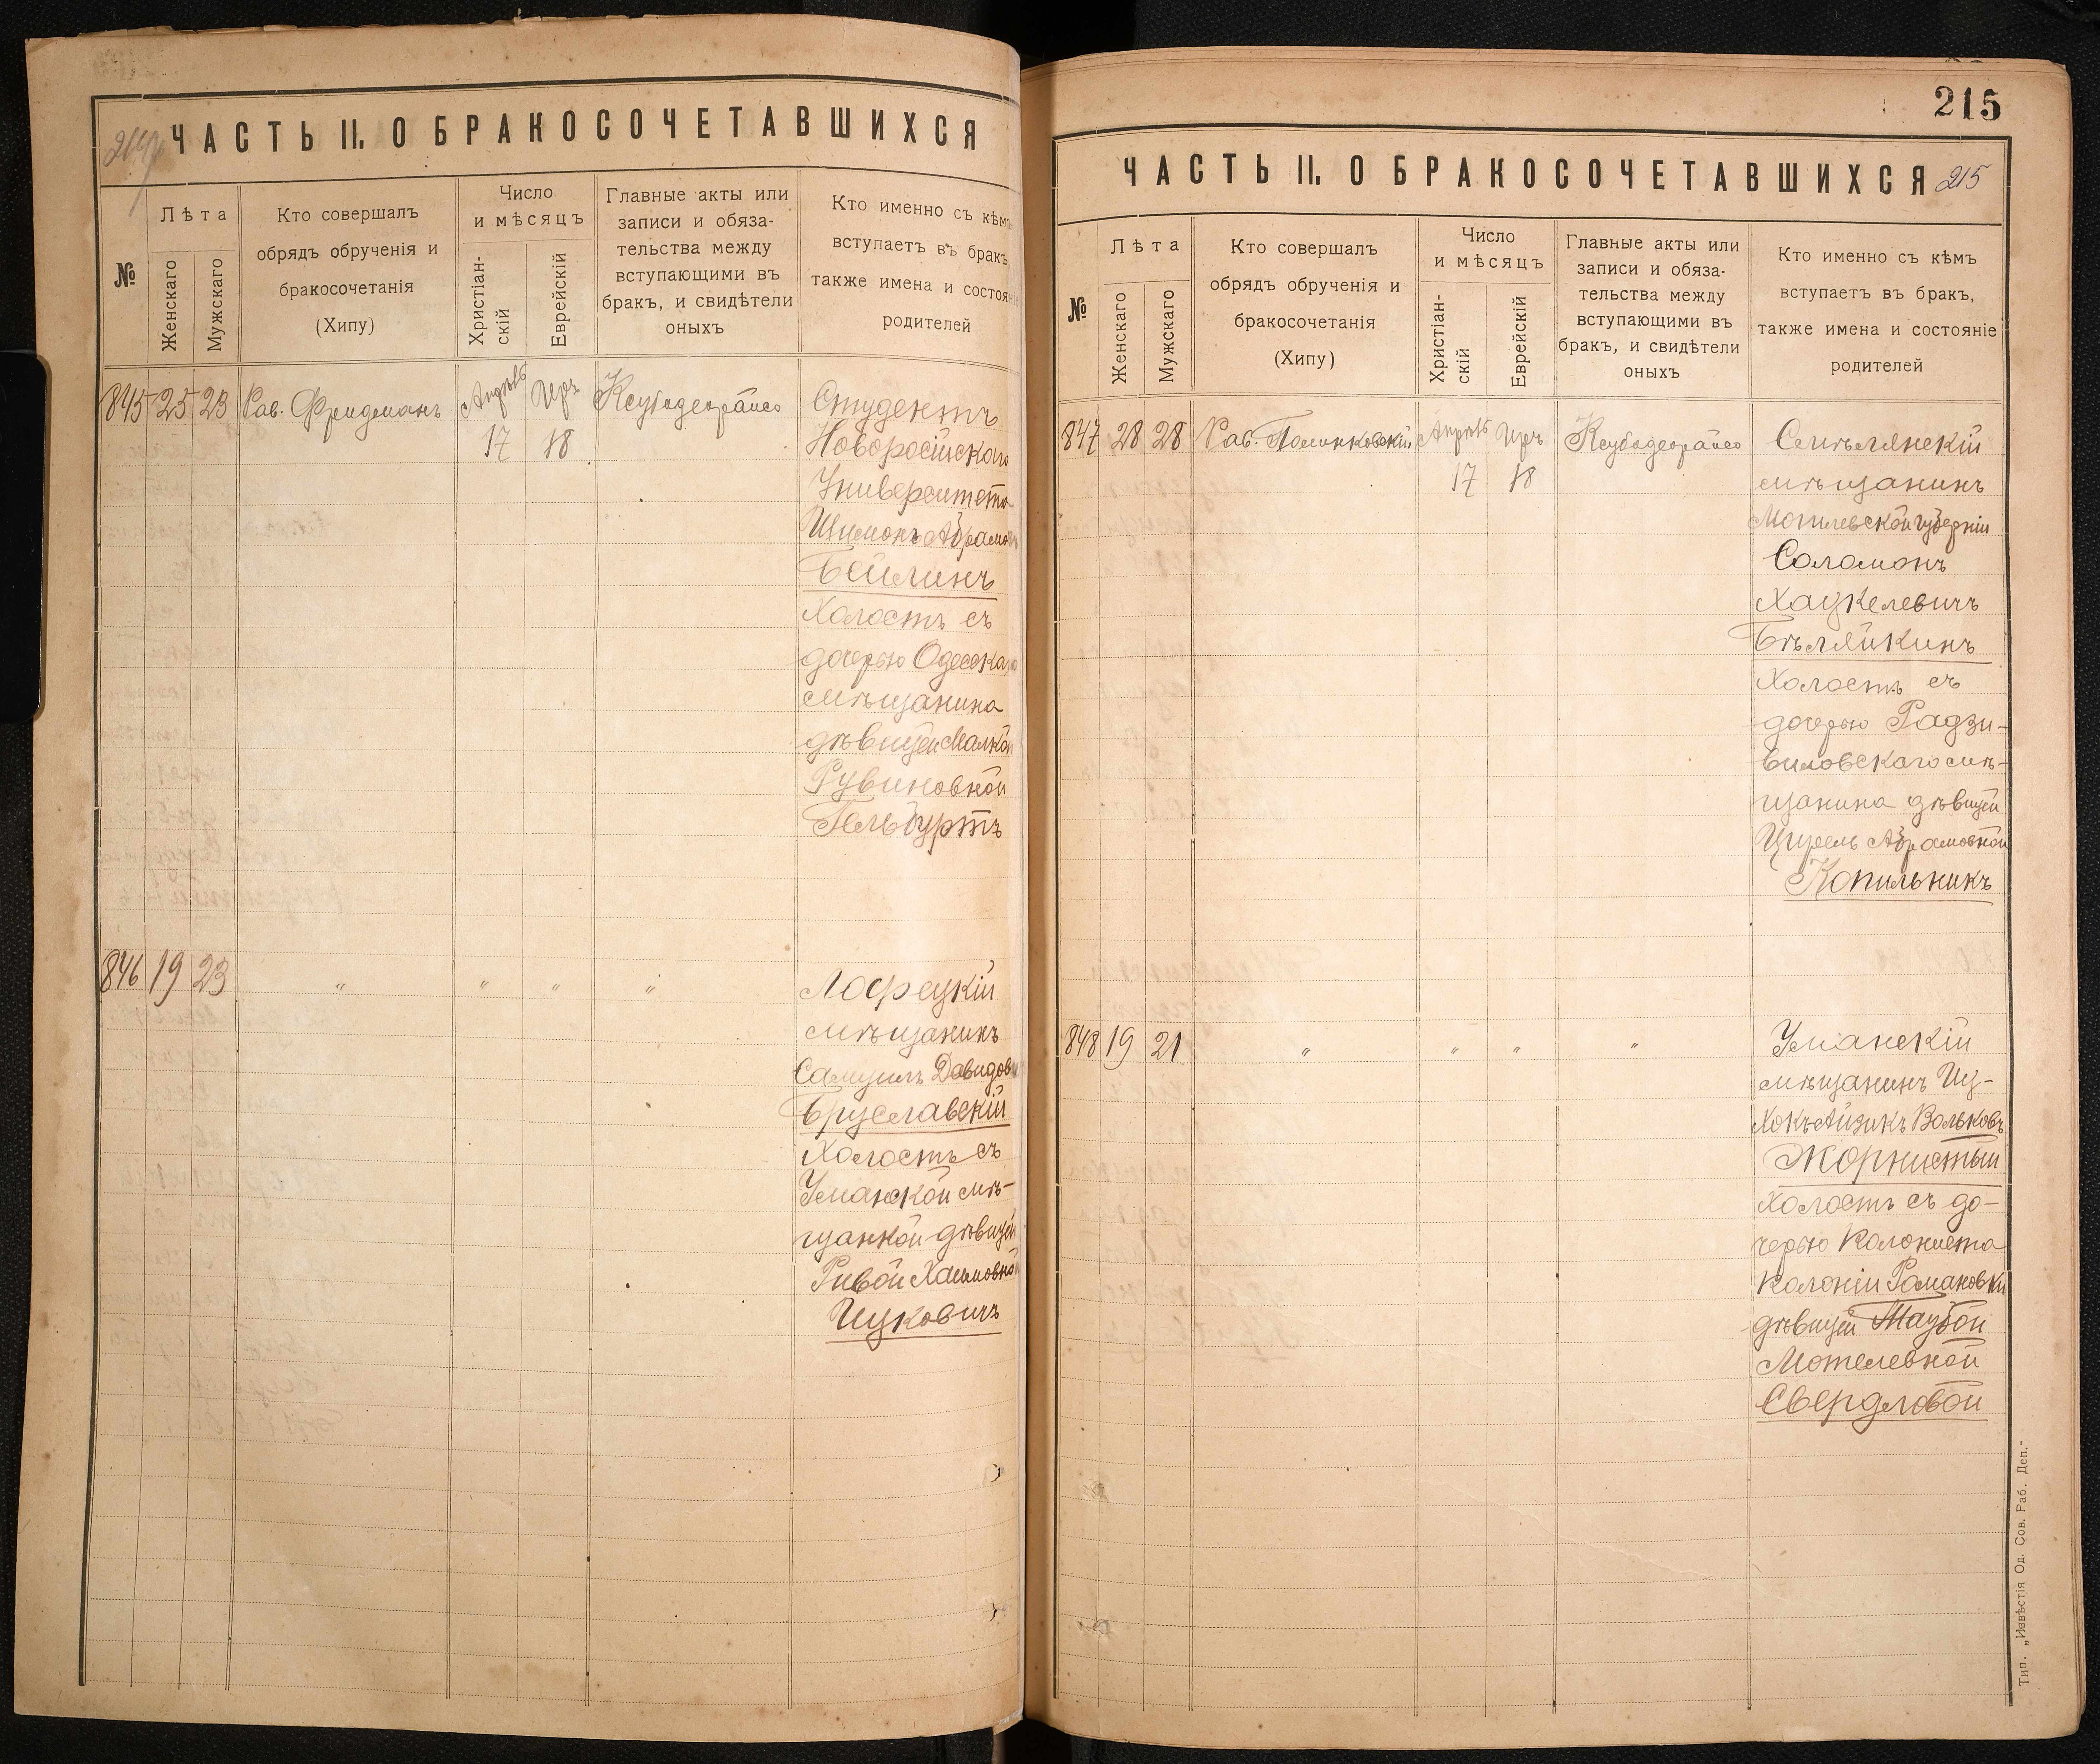 ЧАСТЬ II. О БРАКОСОЧЕТАВШИХСЯ
№
Лѣта
Женскаго
Мужскаго
Кто совершалъ
обрядъ обрученія и
бракосочетанія
(Хипу)
Число
и мѣсяцъ
Христіан-
скій
Еврейскій
Главные акты или
записи и обяза-
тельства между
вступающими въ
бракъ, и свидѣтели
оныхъ
Кто именно съ кѣмъ
вступаетъ въ бракъ,
также имена и состоян
родителей
845 25 23 Рав. Фридманъ
Апрѣль
17
Iръ
18
Студентъ
Новоросійскаго
Университета
Шимонъ Абрамо
Бейлинъ
Холостъ съ
дочерью Одесска
мѣщанина
дѣвицей Малкой
Рувиновной
Гельбуртъ
846 19 23 " " " "
мѣщанинъ
Самуилъ Давидов
Бруславскій
Холостъ съ
Уманской мѣ-
щанкой дѣвицей
Ривой Хаимовной
Ицковичъ
215
ЧАСТЬ II. О БРАКОСОЧЕТАВШИХСЯ 215
№
Лѣта
Женскаго
Мужскаго
Кто совершалъ
обрядъ обрученія и
бракосочетанія
(Хипу)
Число
и мѣсяцъ
Христіан-
скій
Еврейскій
Главные акты или
записи и обяза-
тельства между
вступающими въ
бракъ, и свидѣтели
оныхъ
Кто именно съ кѣмъ
вступаетъ въ бракъ,
также имена и состояніе
родителей
847 28 28 Рав. Полинковскій
Апрѣль
17
Iръ
18
мѣщанинъ
Могилевской губерніи
Соломонъ
Хацкелевичъ
Бѣляйкинъ
Холостъ съ
дочерью Радзи-
виловскаго мѣ-
щанина дѣвицей
Абрамовной
Копильникъ
848 19 21 " " " "
Уманскій
мѣщанинъ Иц-
хокъ-Айзикъ Вольковъ
Жорнистый
Холостъ съ до-
черью Колониста
Колоніи Романовки
дѣвицей Таубой
Мотелевной
Свердловой
Тип. „Извѣстія Од. Сов. Раб. Деп."